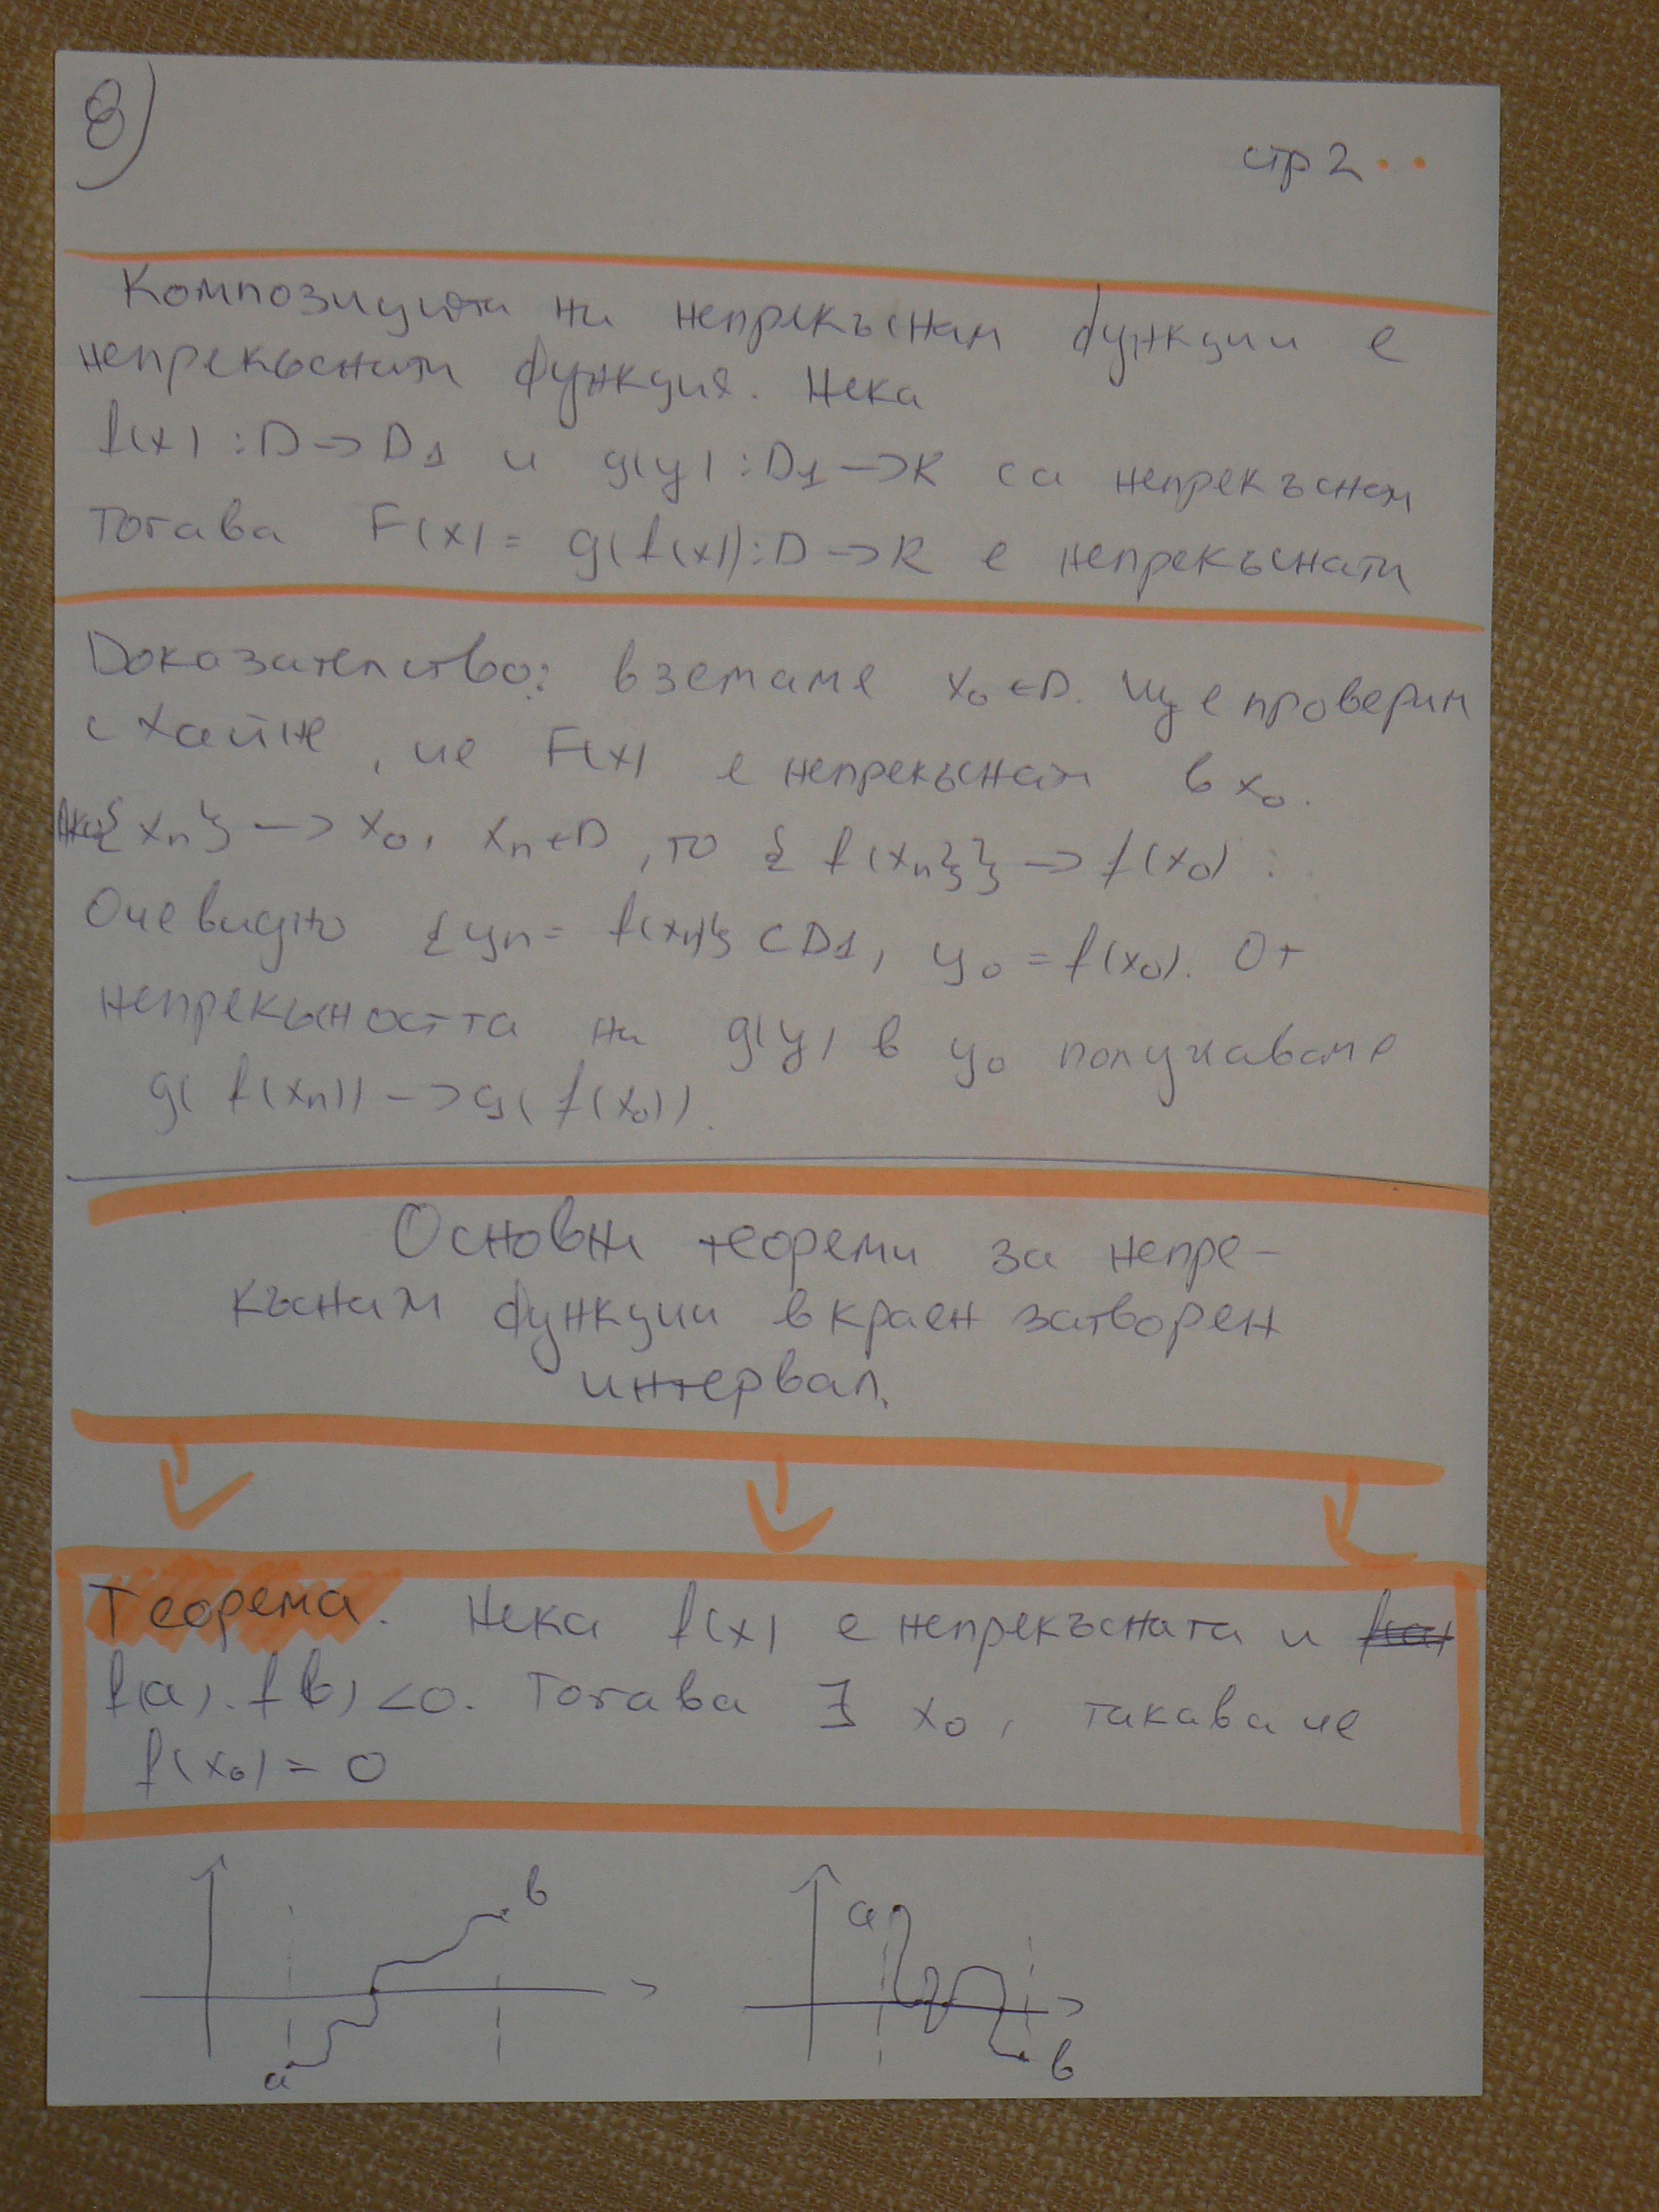 8)
стр 2
Композицията на непрекъснати функции е
непрекъсната функция. Нека
f(x) : D -> D1 и g(y) : D1 -> R са непрекъснати
Тогава F(x) = g(f(x)) : D -> R е непрекъсната
Доказателство: взетаме x₀ ∈ D. Ще проверим
с Хайне, че F(x) е непрекъсната в x₀.
Ако {xₙ} -> x₀, xₙ ∈ D, то {f(xₙ}} -> f(x₀) :
Очевидно {yₙ = f(xₙ)} ⊂ D1, y₀ = f(x₀). От
непрекъсността на g(y) в y₀ получаваме
g(f(xₙ)) -> g(f(x₀)).
Основни теореми за непре-
къснати функции в краен затворен
интервал.
Теорема. Нека f(x) е непрекъсната и
f(a).f(b) <0. Тогава ∃ x₀, такава че
f(x₀) = 0
b
a
a
b